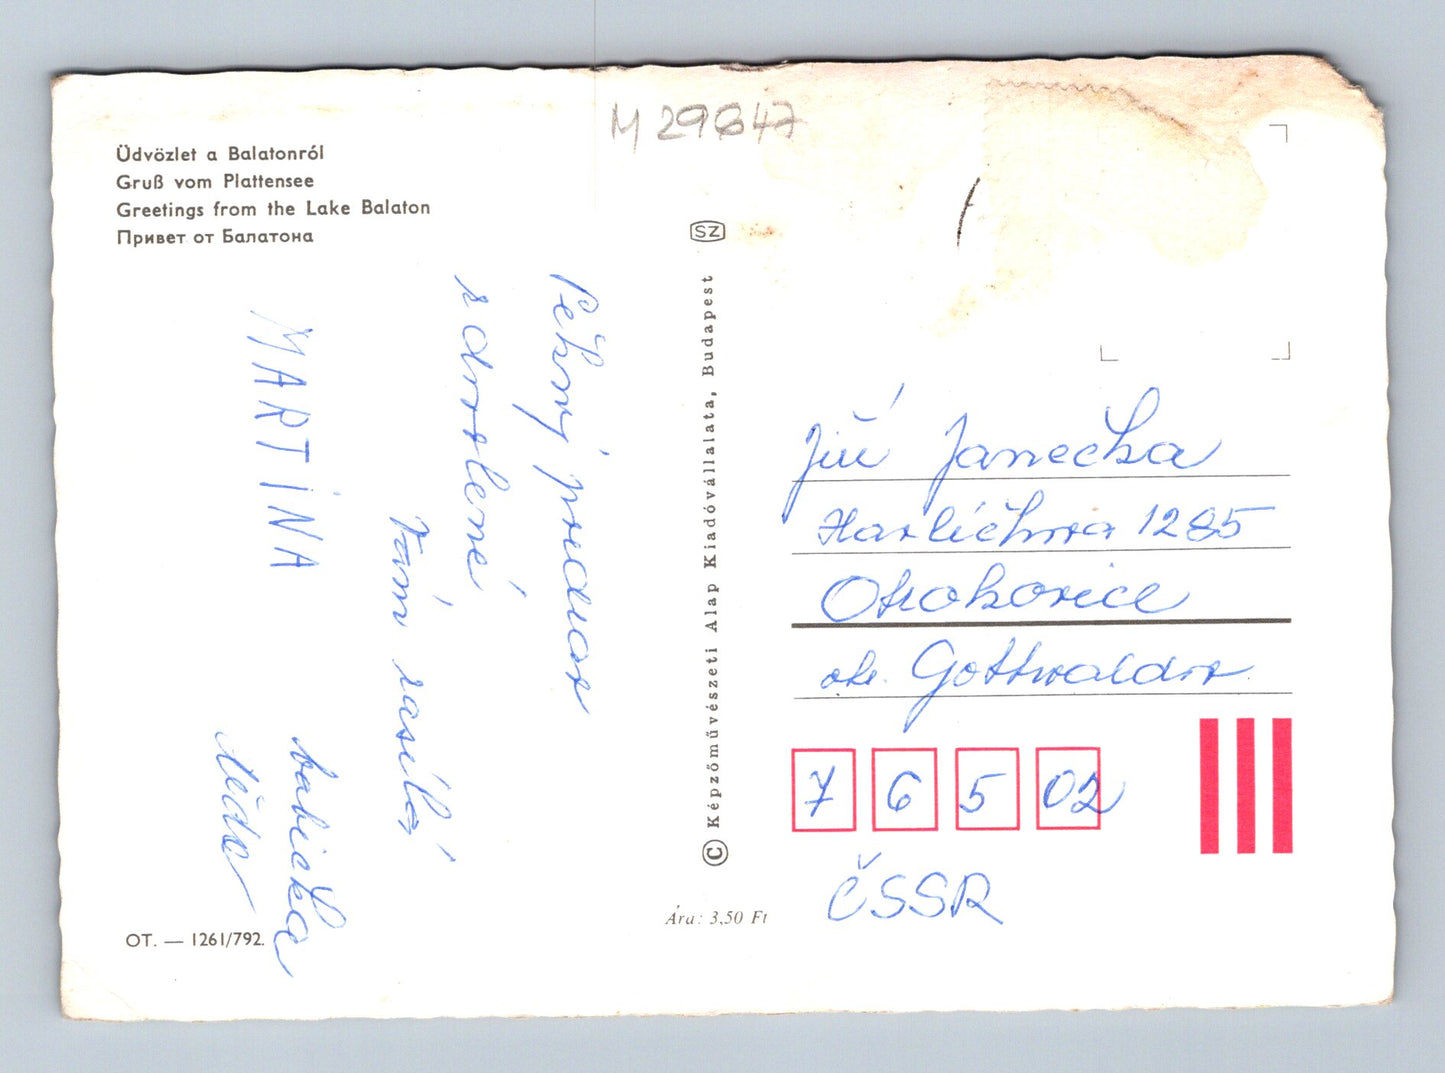 Üdvözlet a Balatonról
Gruß vom Plattensee
Greetings from the Lake Balaton
Привет от Балатона
M 29647
SZ
Pěkný pozdrav
z dovolené
Vám zasílá
MARTINA
babička
děda
© Képzőművészeti Alap Kiadóvállalata, Budapest
Jiří Janečka
Havlíčkova 1285
Otrokovice
okr. Gottwaldov
7 6 5 02
ČSSR
Ára: 3,50 Ft
OT. — 1261/792.